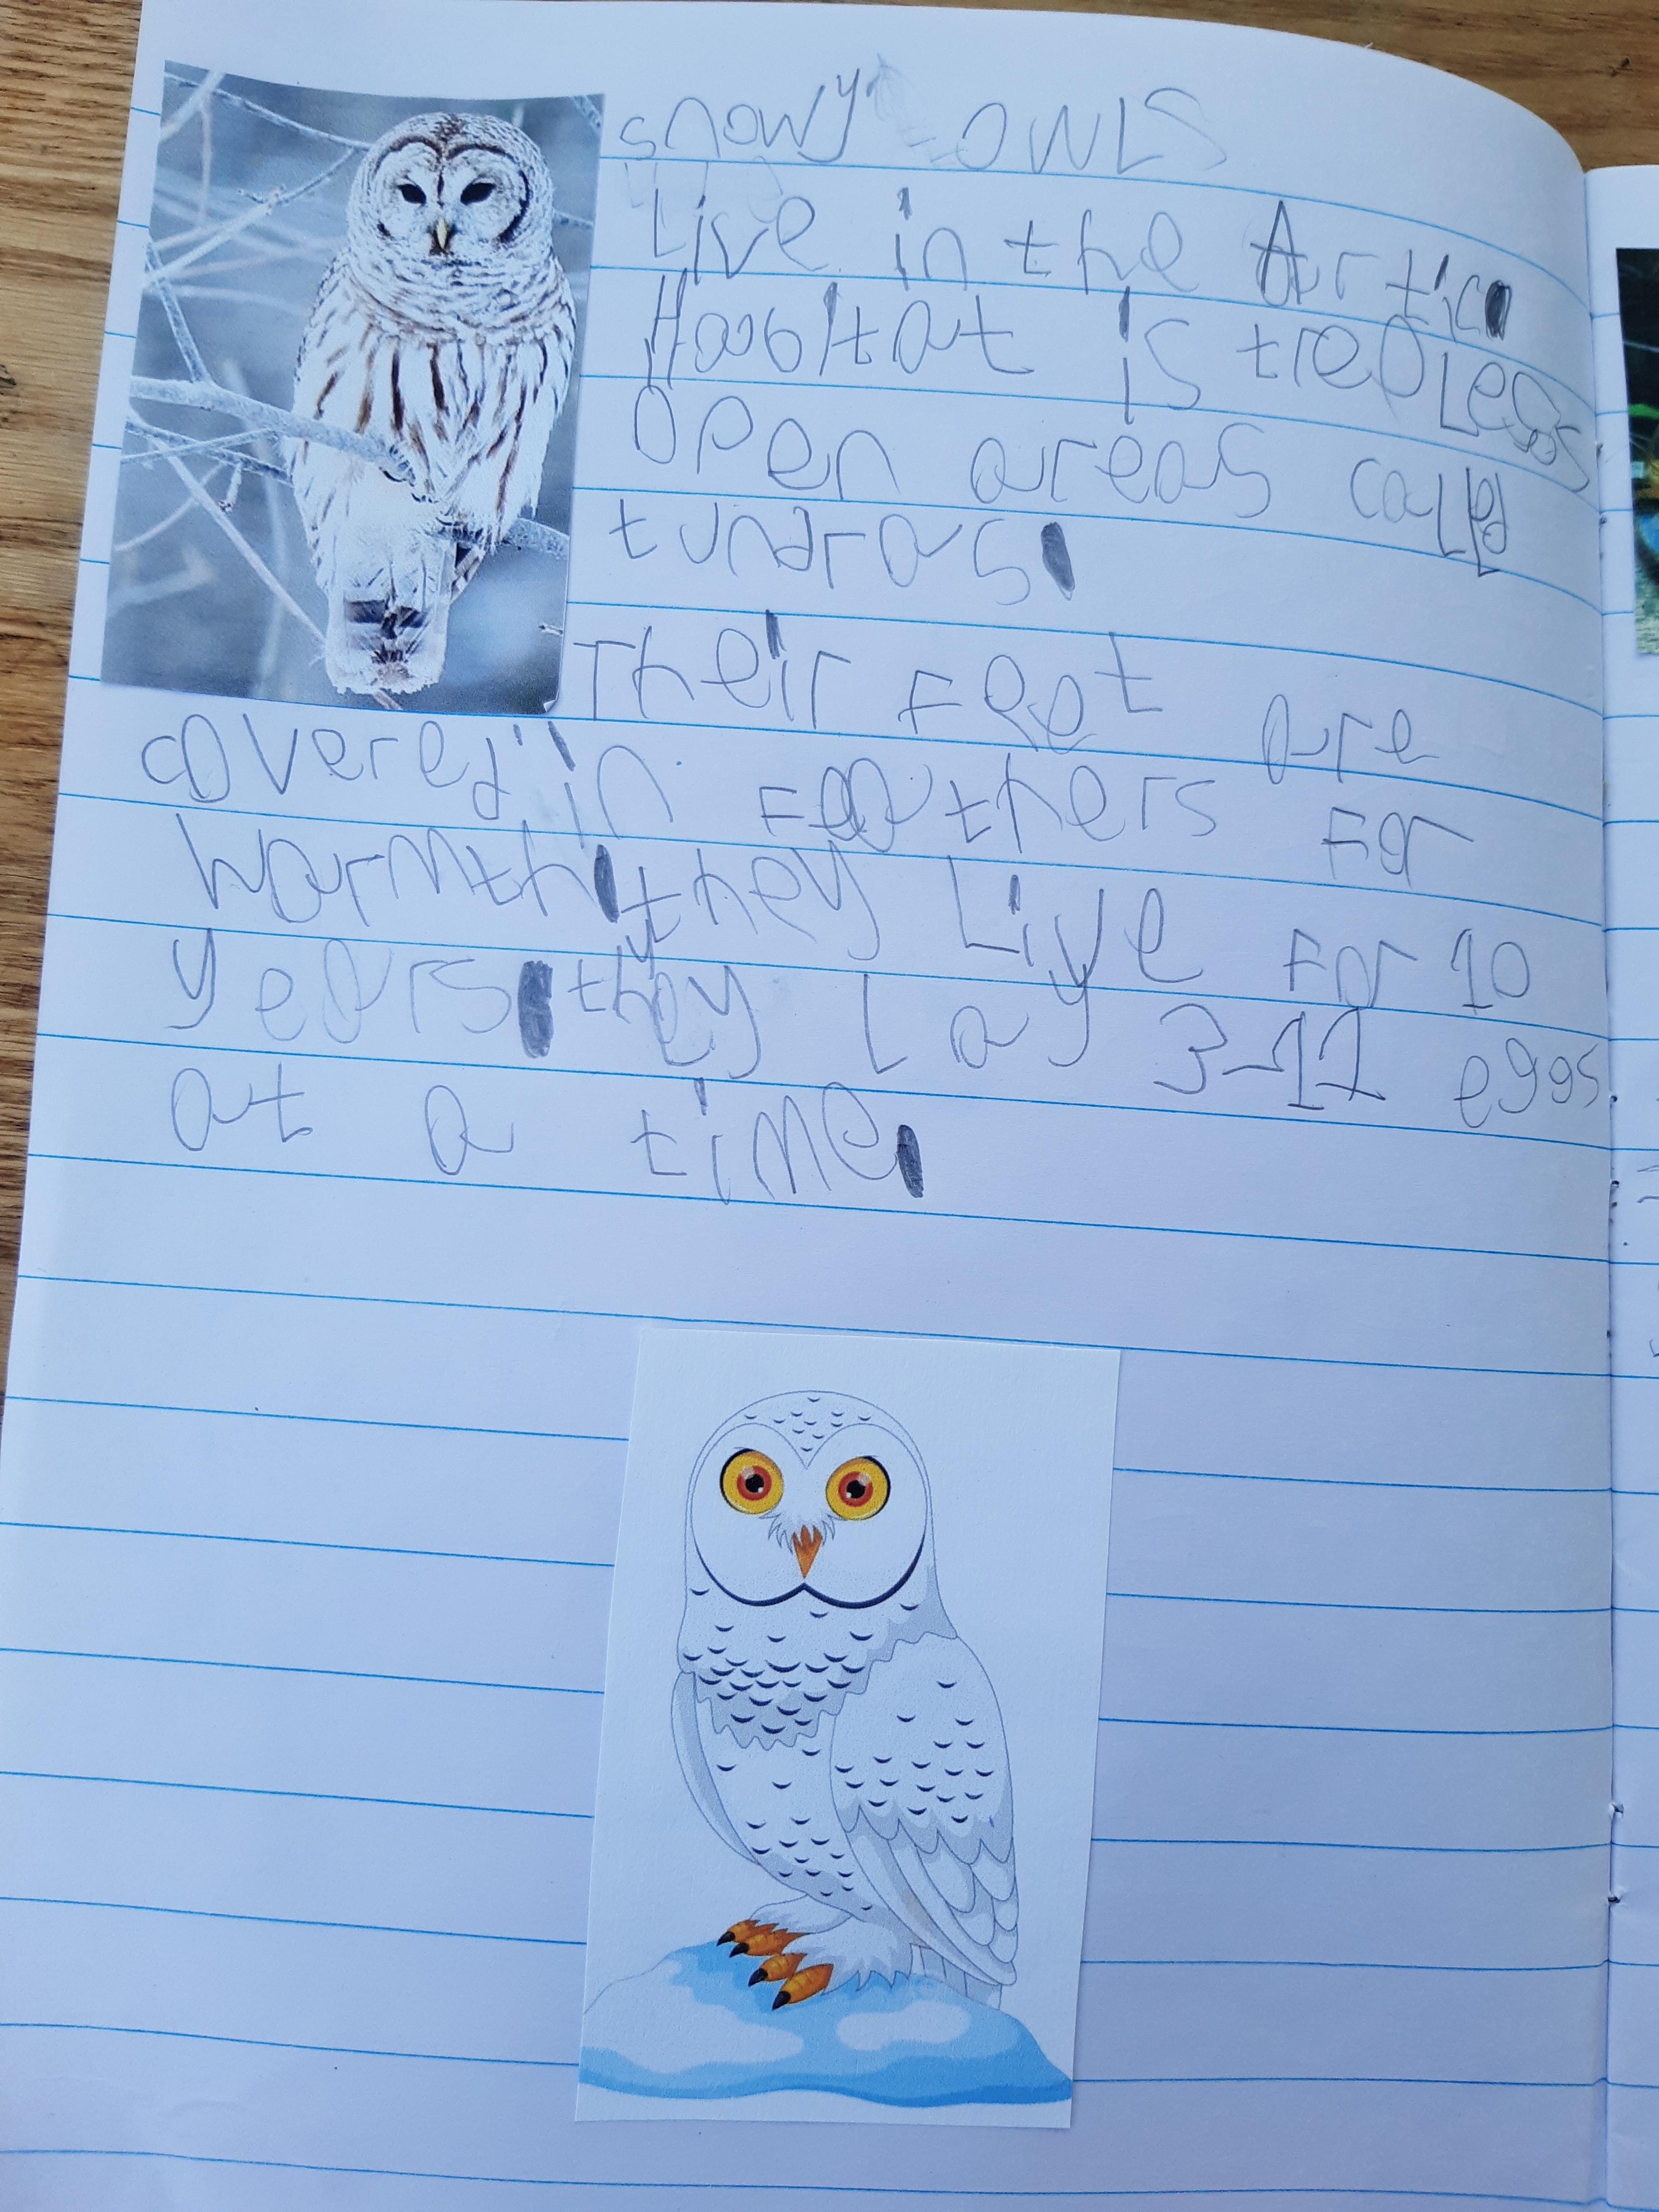 snowy OWLS
Live in the Artic.
Habitat is treeLess
Open areas calld
tundras.
Their Feet are
covered in Feathers For
Warmth. they Live For 10
years. they Lay 3-11 eggs
at a time.